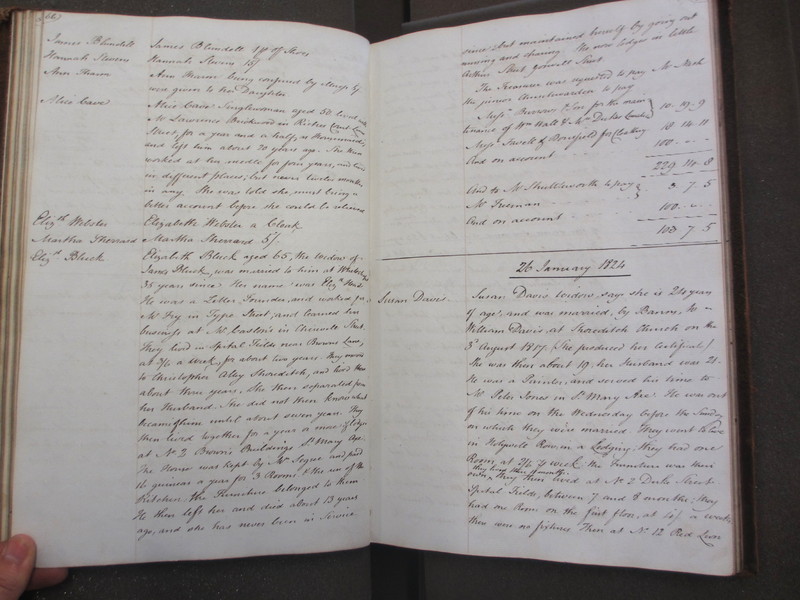 James Blundell James Blundell 1 pr of Shoes
Hannah Stevens Hannah Stevens 15/
Ann Thaxon Ann Thaxon being confined by
was given to her Daughter
Alice Cave Alice Cave Singlewoman aged 50 lived with
Mr Lawrence Brickwood in
Street, for a year and a half, as Housemaid,
and left him about 20 years ago. She then
worked at her needle for four years, and lived
in different places; but never twelve months
in any. She was told she must bring a
better account before she could be relieved
Elizth Webster Elizabeth Webster a Cloak
Martha Sherrard Martha Sherrard 5/
Elizth Bluck Elizabeth Bluck aged 65, the widow of
James Bluck, was married to him at
35 years since. Her name was Elizth
He was a Letter Founder, and worked for
Mr Fry in Type Street, and learned his
business at Mr Caslon's in Chiswell Street.
They lived in Spital Fields near Browns Lane,
at a Week, for about two years. They moved
to Christopher Alley Shoreditch, and lived there
about three years. She then separated from
her Husband. She did not then know what
became of him until about seven years. They
then lived together for a year or more of
at No 2 Browns Buildings St Mary Axe.
The House was kept by Mr and paid
16 guineas a year for 3 Rooms & the use of the
Kitchen, the Furniture belonged to them
He then left her and died about 13 years
ago, and she has never been in Service
since; but maintained herself by going out
nursing and charing. She now lodges in little
Arthur Street Street.
The Treasurer was requested to pay Mr Nash
the junior Churchwarden to pay
Messrs Burrows & Son for the main
tenance of Wm Hall & Mrs Dukes 10 . 19 . 9
Messrs Sewell & for Clothing 18 14 11
And on account 100 - -
229 14 8
And to Mr Shuttleworth to pay
Mr Freeman 3 7 5
And on account 100 - -
103 7 5
26 January 1824
Susan Davis Susan Davis widow, says she is 24 years
of age, and was married, by Banns, to
William Davis, at Shoreditch Church on the
3d August 1817. (She produced her Certificate)
She was then about 19, her Husband was 21.
He was a Painter, and served his time to
Mr Peter Jones in St Mary Axe. He was out
of his time on the Wednesday before the Sunday
on which they were married. They went to live
in Holywell Row, in a Lodging, they had one
Room, at a week, the Furniture was their
they lived there
own, they then lived at No 2 Duke Street
Spital Fields, between 7 and 8 months; they
had one Room on the first floor, at a week
there were no fixtures. Then at No 12 Red Lion